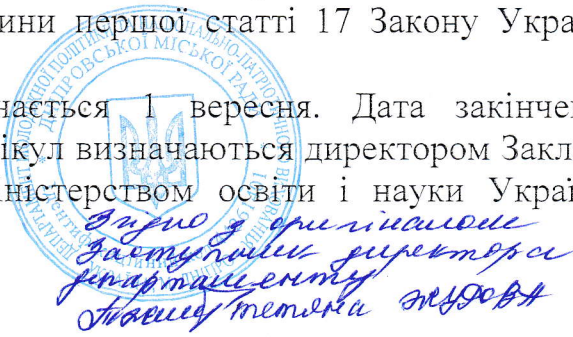 ини першої статті 17 Закону Укра
нається 1 вересня. Дата закінче
ікул визначаються директором Закл
іністерством освіти і науки Украї
Згідно з оригіналом
Заступник директора
департаменту
Тетяна